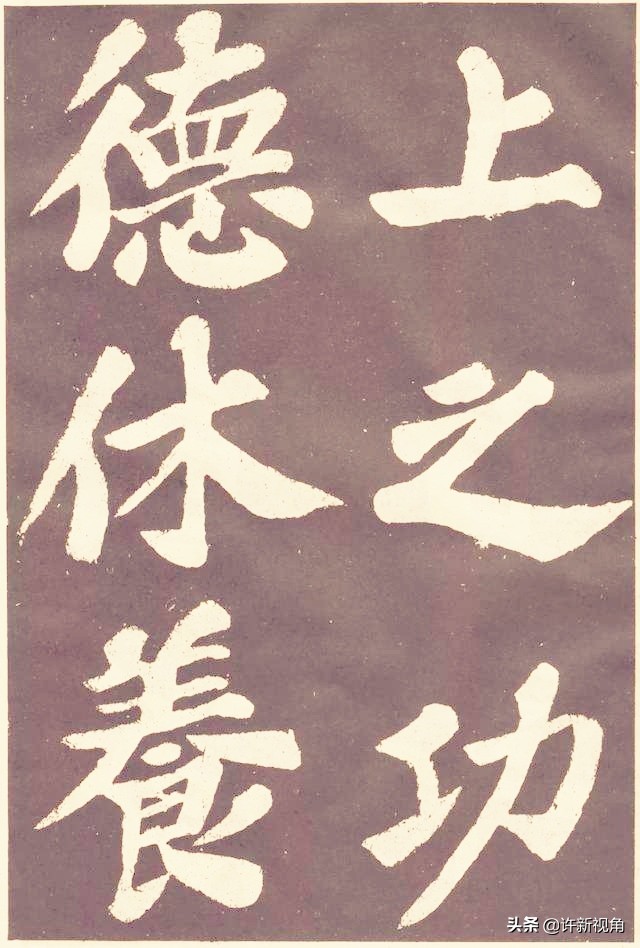 上之功
德休養
头条 @许新视角